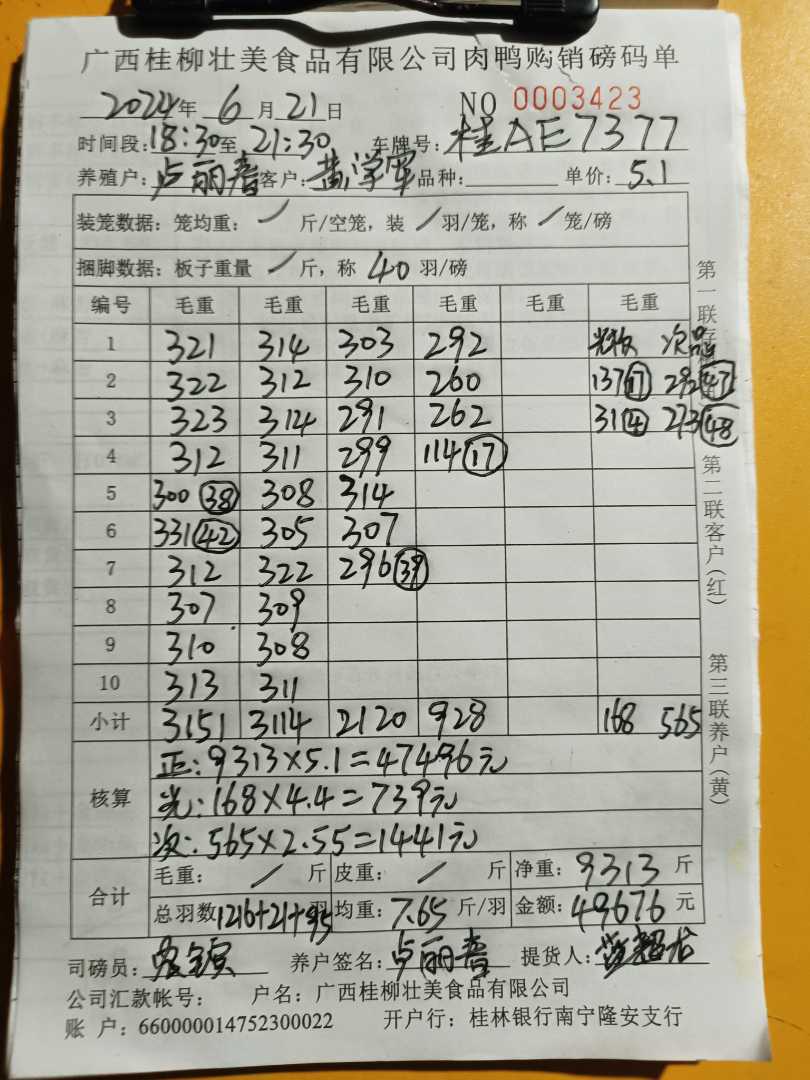 广西桂柳壮美食品有限公司肉鸭购销磅码单
2024年 6 月 21 日 NO 0003423
时间段:18:30至 21:30 车牌号: 桂AE7377
养殖户: 卢丽 客户: 黄学军 品种: 单价: 5.1
装笼数据: 笼均重: / 斤/空笼, 装 / 羽/笼, 称 / 笼/磅
捆脚数据: 板子重量 / 斤, 称 40 羽/磅
编号 毛重 毛重 毛重 毛重 毛重 毛重
1 321 314 303 292 次品
2 322 312 310 260 137⑰ 292㊼
3 323 314 291 262 31④ 273㊽
4 312 311 299 114⑰
5 300㊳ 308 314
6 331㊷ 305 307
7 312 322 296㊴
8 307 309
9 310 308
10 313 311
小计 3151 3114 2120 928 168 565
核算
正: 9313×5.1=47496元
光: 168×4.4=739元
次: 565×2.55=1441元
合计
毛重: / 斤 皮重: / 斤 净重: 9313 斤
总羽数 1216+21+95 羽 均重: 7.65 斤/羽 金额: 49676 元
司磅员: 养户签名: 卢丽 提货人:
公司汇款帐号: 户名: 广西桂柳壮美食品有限公司
账 户: 660000014752300022 开户行: 桂林银行南宁隆安支行
第一联存根
第二联客户(红)
第三联养户(黄)